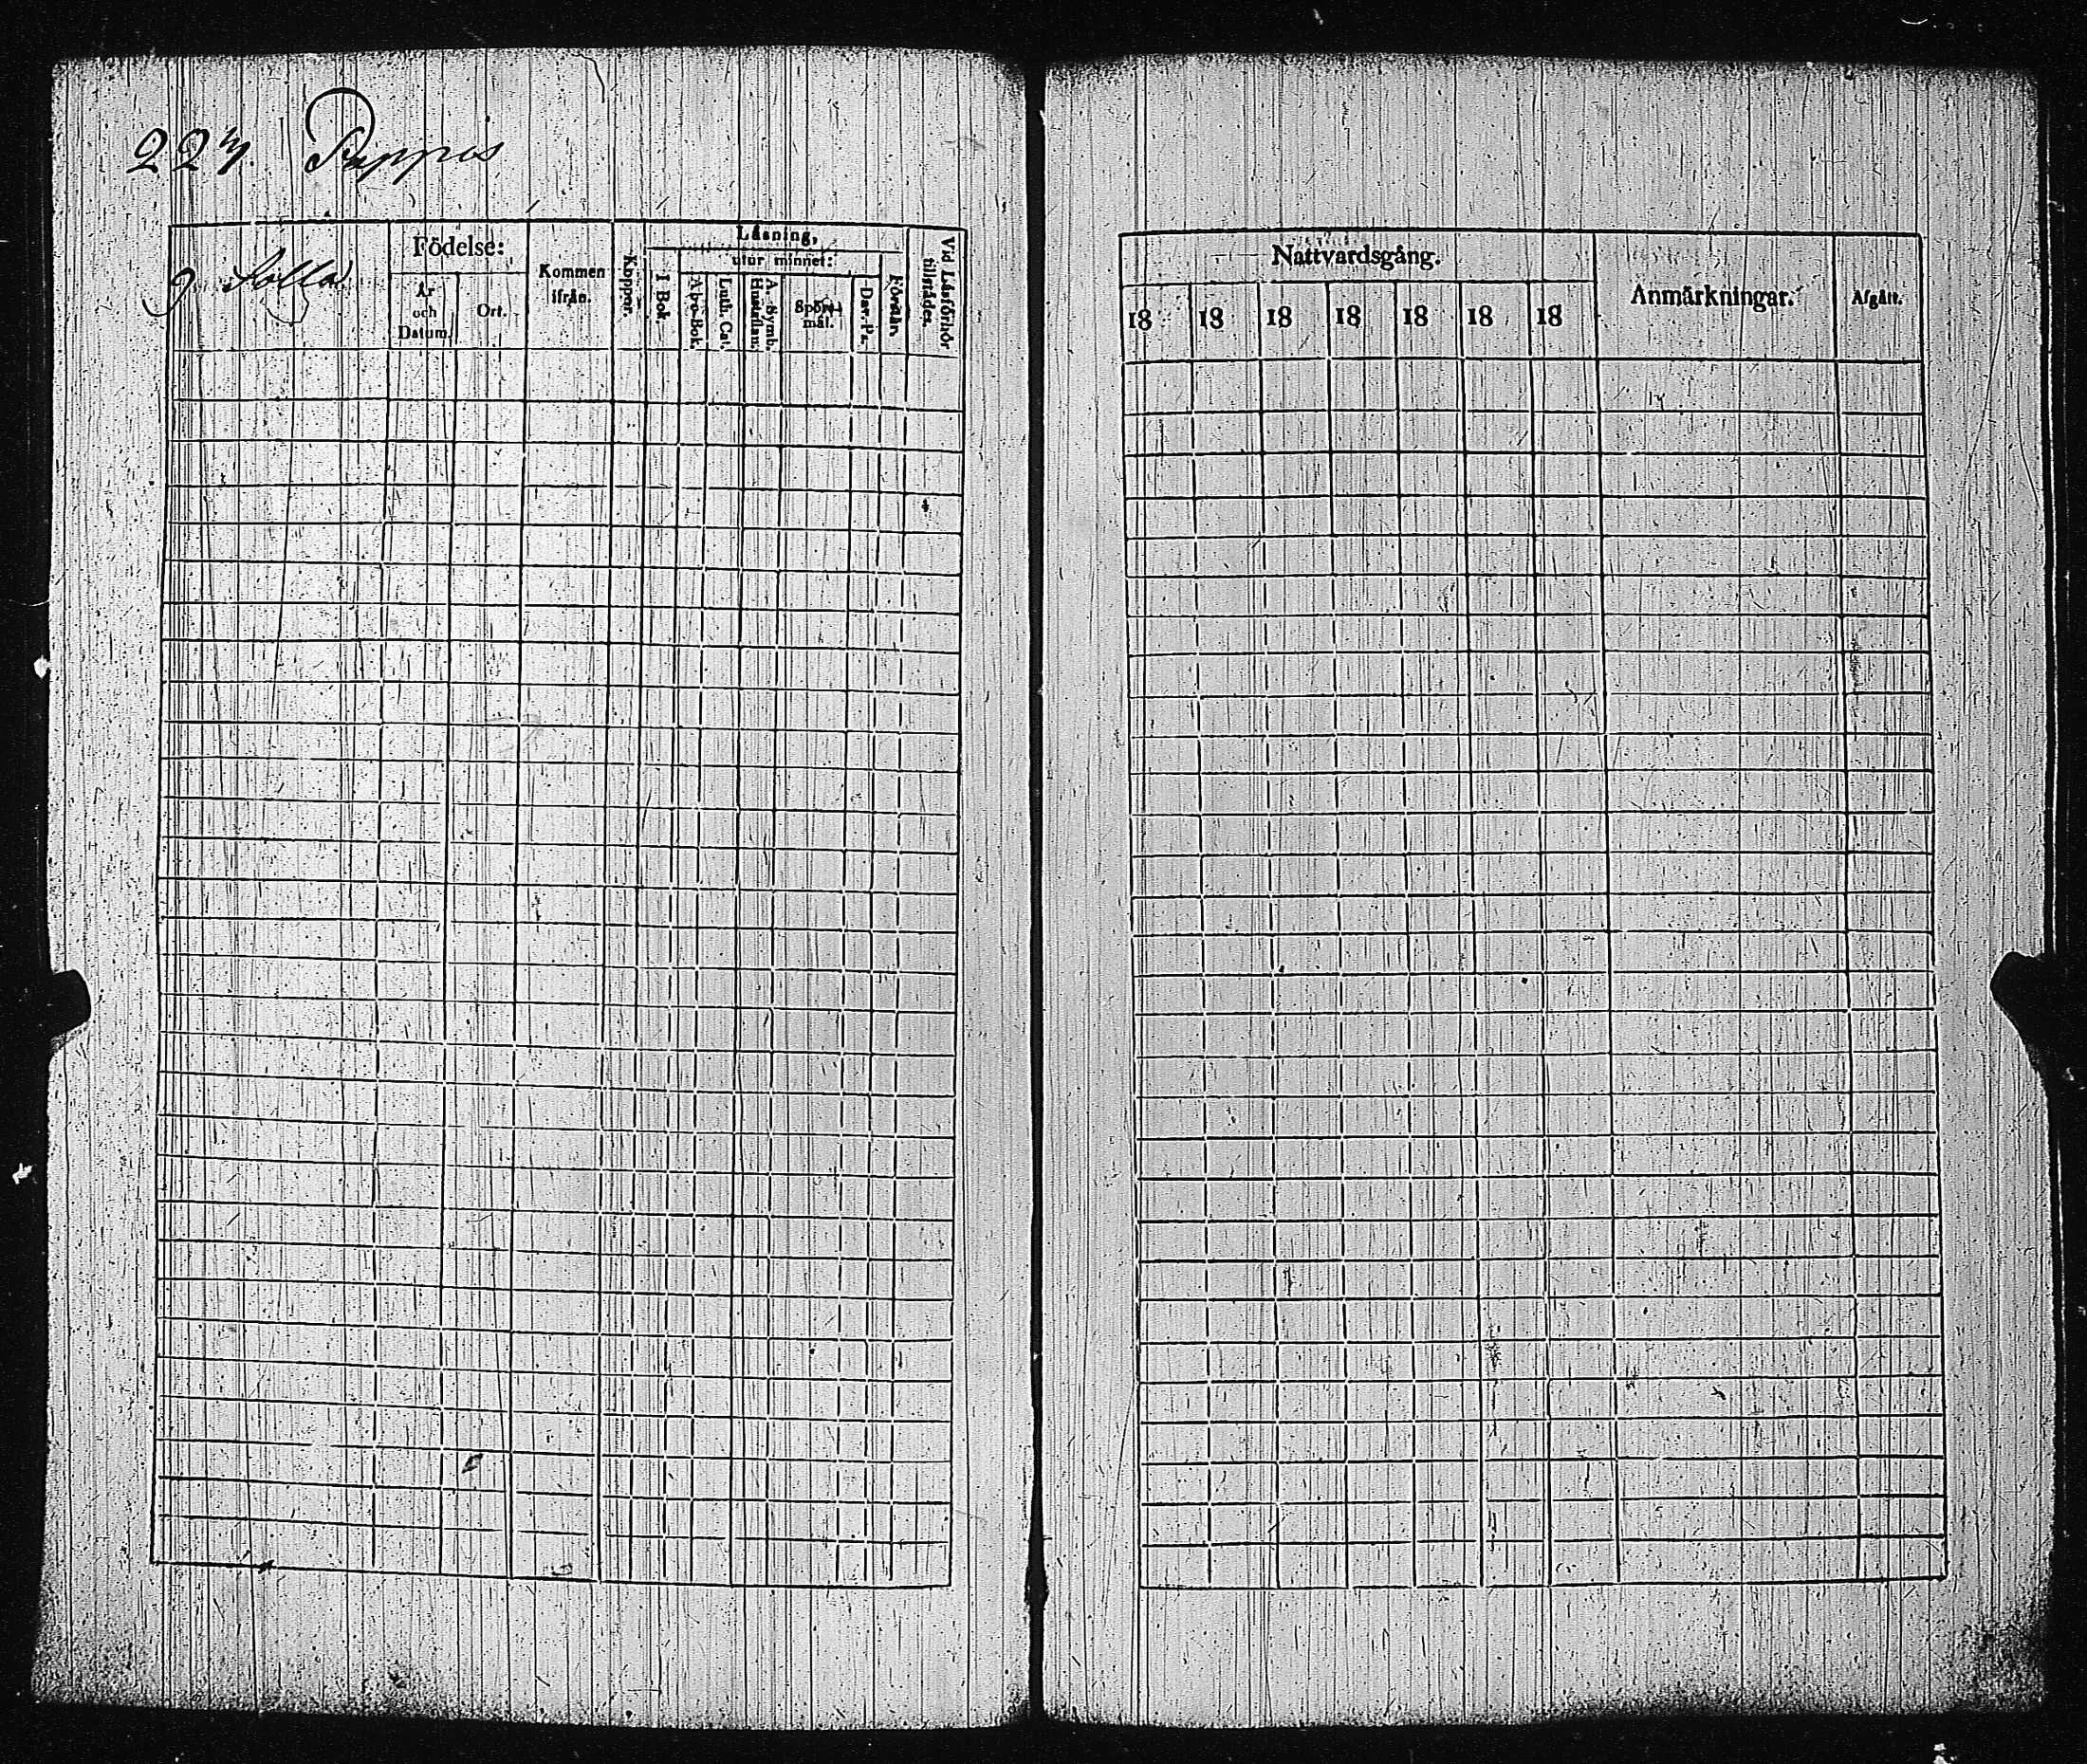 227. Pappos
9 Sollas
Födelse:
År och Datum.
Ort.
Kommen ifrån.
Koppor.
Läsning,
I Bok.
utur minnet:
Abc-Bok.
Luth. Cat.
A. Symb. Hustaflan.
Spörsmål.
Dav. Ps.
Förstånd.
Vid Läsförhör tillstädes.
Nattvardsgång.
18 18 18 18 18 18 18
Anmärkningar.
Afgått.